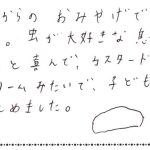 からの おみやげで
。虫が大好きな息
と喜んで、カスタード
ームみたいで、子ども
めました。